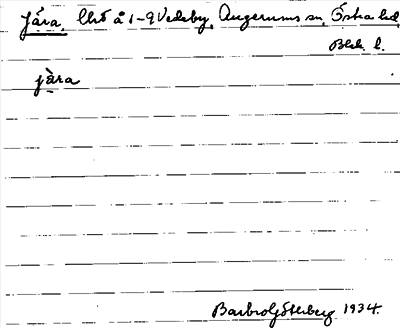 Jära, Ulrö å 1-9 Vedeby, Augerums sn, Östra hd,
Blek. l.
jära
Barbro Götlberg 1934.